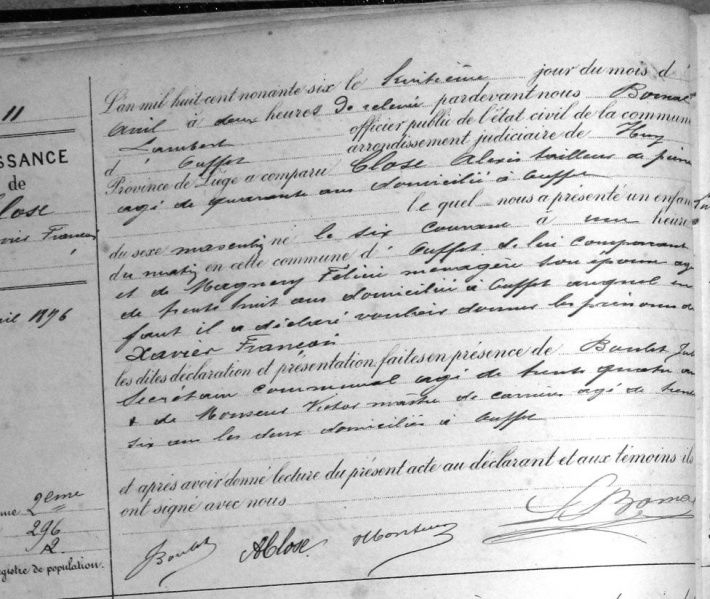 11
SSANCE
de
lose
vier François
ril 1896
2eme
296
2
gistre de population.
L'an mil huit cent nonante six le huitième jour du mois d'
Avril à deux heures de relevée pardevant nous Bomal
Lambert officier public de l'état civil de la commune
d' Ouffet arrondissement judiciaire de Huy
Province de Liège a comparu Close Alexis tailleur de pierre
agé de quarante ans domicilié à Ouffet
le quel nous a présenté un enfant
du sexe masculin né le six courant à une heure
du matin en cette commune d' Ouffet de lui comparant
et de Magnery Félicie ménagère son épouse agée
de trente huit ans domicilié à Ouffet auquel en
faut il a déclaré vouloir donner les prénoms de
Xavier François
les dites déclaration et présentation faites en présence de Boulet
Secrétaire communal agé de trente quatre ans
& de Monseur Victor maître de carrières agé de trente
six ans les deux domiciliés à Ouffet
et après avoir donné lecture du présent acte au déclarant et aux témoins ils
ont signé avec nous
Boulet AClose Monseur L Bomal